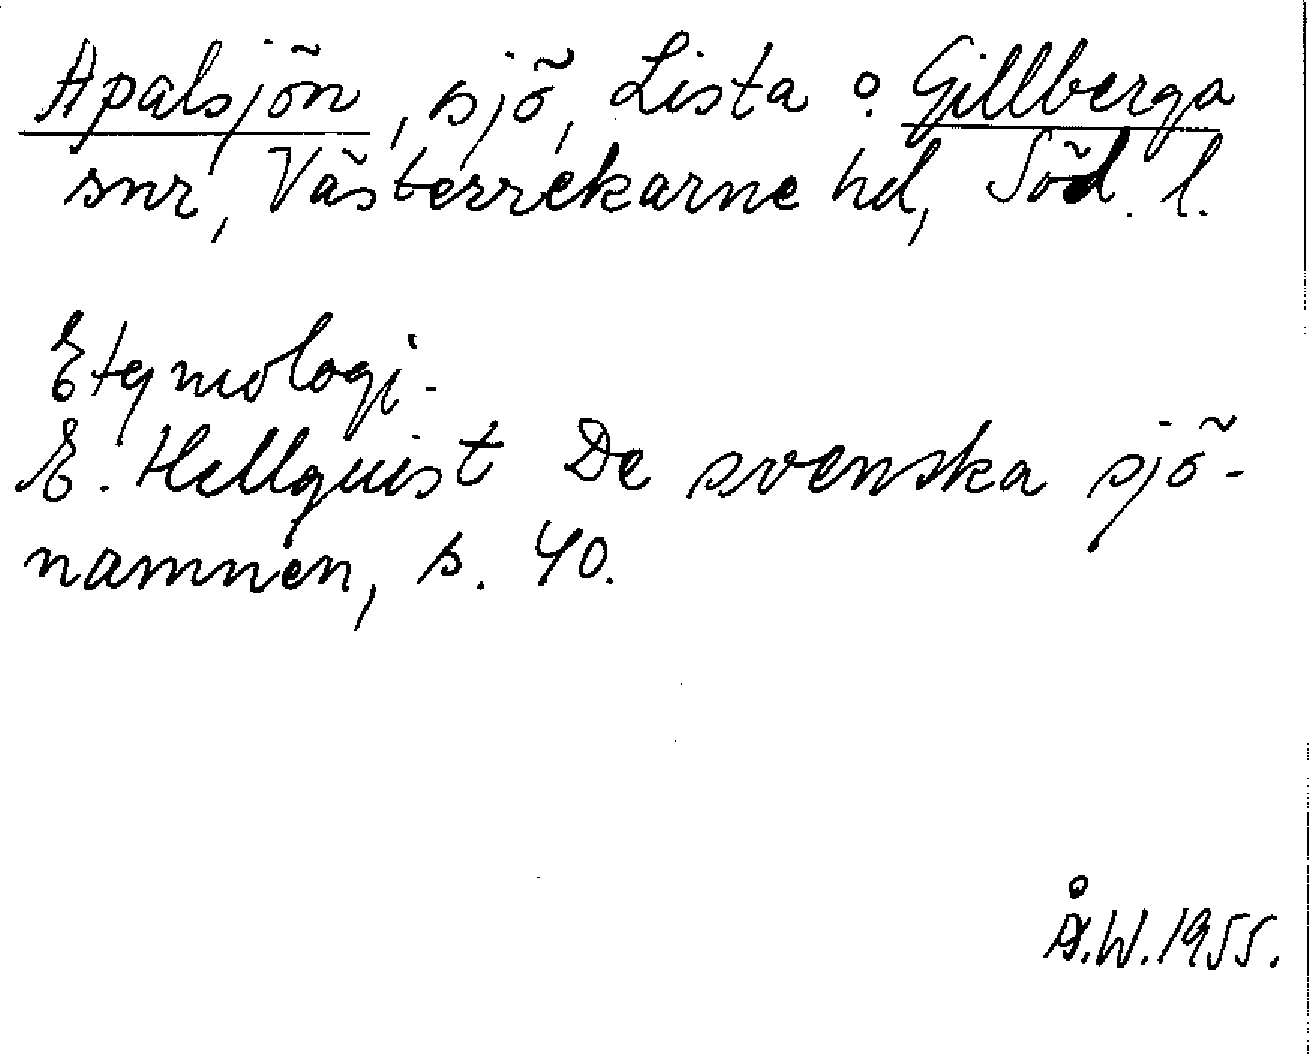 Apalsjön, sjö, Lista o. Gillberga
snr, Västerrekarne hd, Söd. l.
Etymologi.
E. Hellquist De svenska sjö-
namnen, s. 40.
Å.W. 1955.